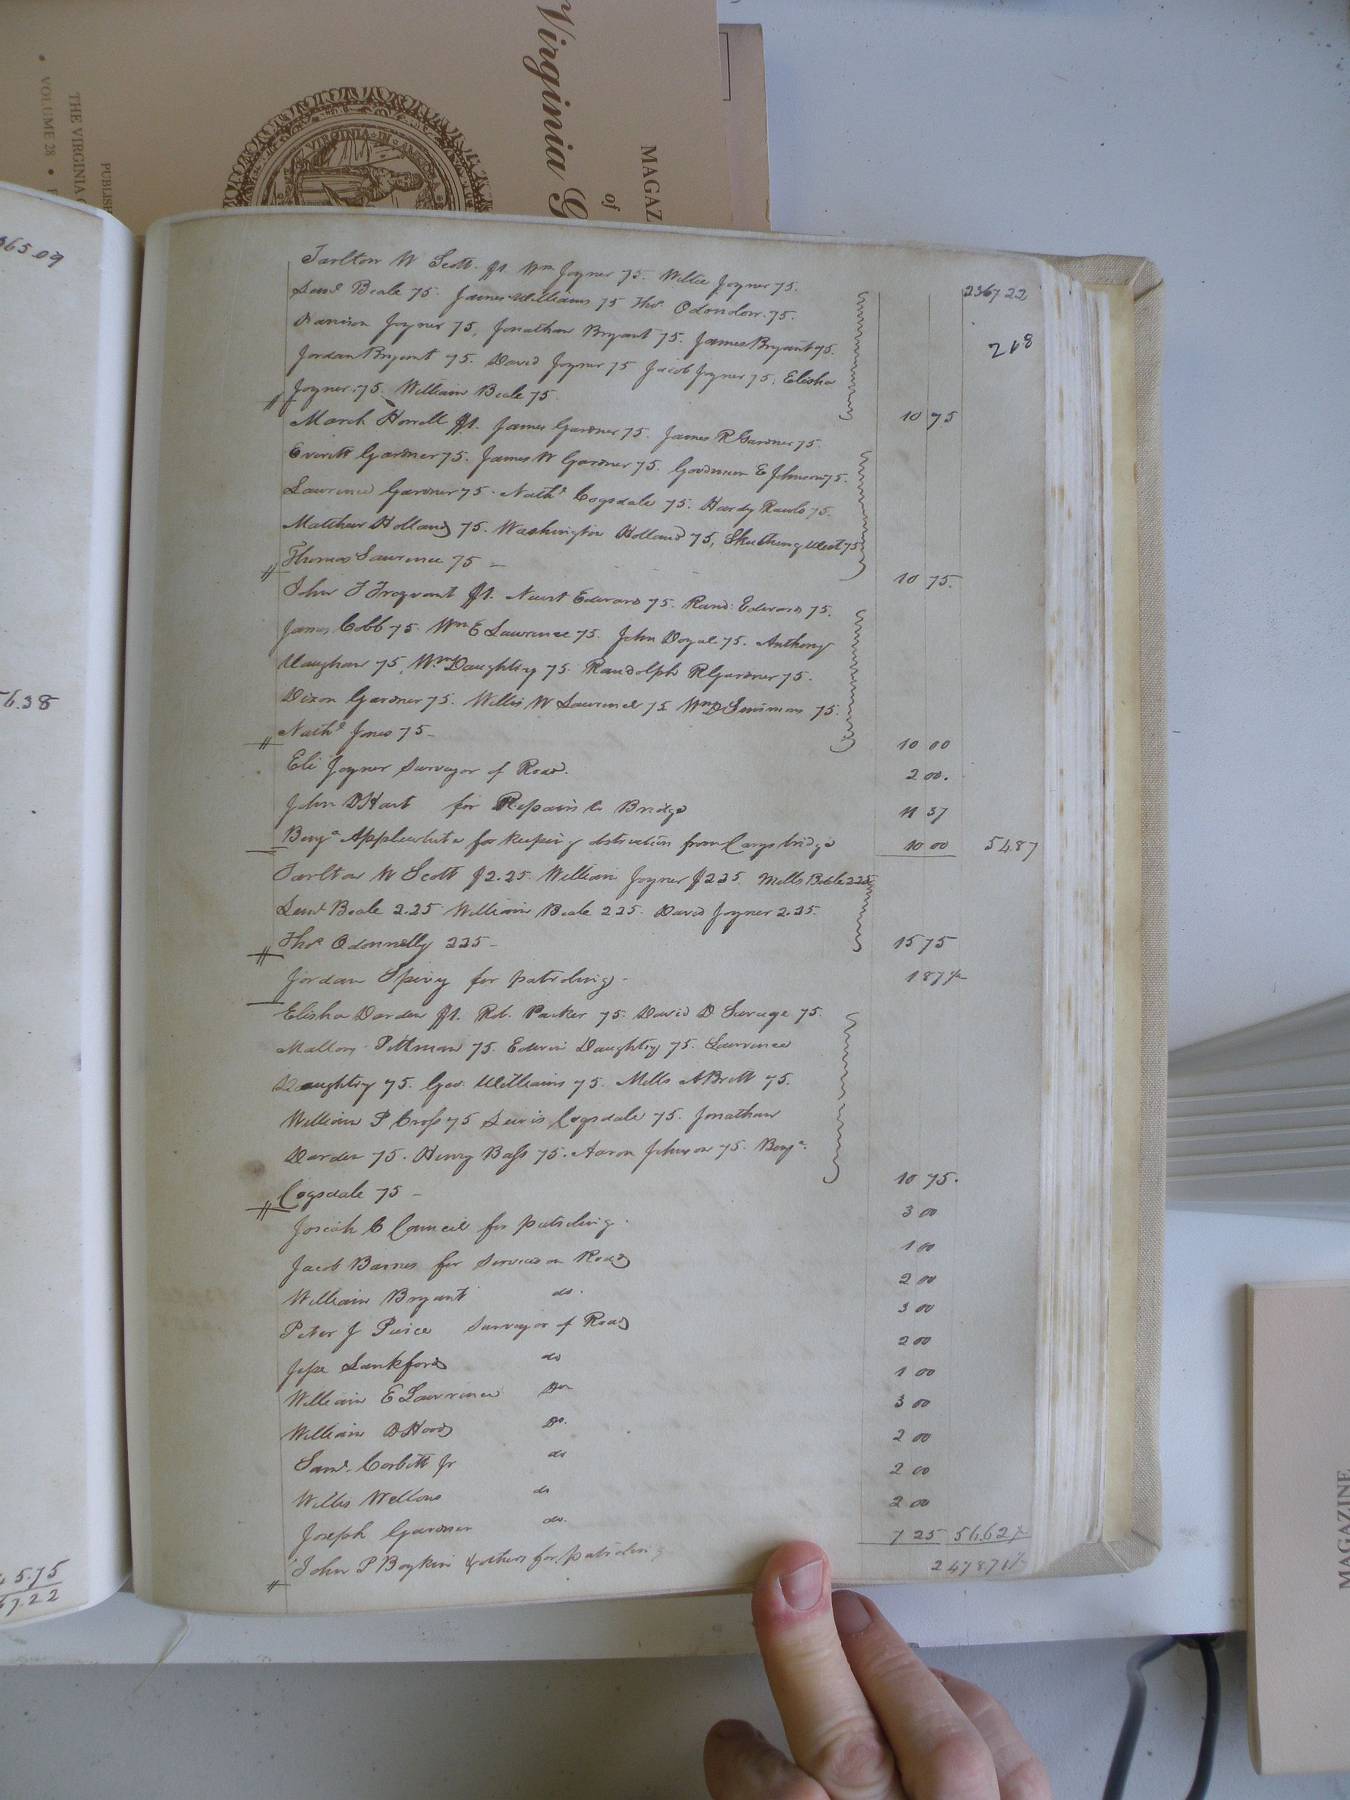 Virginia
MAGAZ
of
THE VIRGINIA
VOLUME 28
PUBLISH
VIRGINIA
365.09
56.38
45.75
67.22
2367 22
268
Tarlton W Scott $1. Wm Joyner 75. Willie Joyner 75.
Saml Beale 75. James Williams 75 Thos Odondon. 75.
Joyner 75, Jonathan Bryant 75. James Bryant 75.
Jordan Bryant 75. David Joyner 75 Jacob Joyner 75, Elisha
Joyner. 75. William Beale 75. 10 75
March Howell $1. James Gardner 75. James R Gardner 75.
Everitt Gardner 75. James W Gardner 75. Goodman E Johnson 75.
Lawrence Gardner 75. Nathl Cogsdale 75. Hardy Rawls 75.
Matthew Holland 75. Washington Holland 75, West 75
Thomas Lawrence 75 - 10 75.
John T $1. Newit Edwards 75. Rand: Edwards 75.
James Cobb 75. Wm E Lawrence 75. John Doyal 75. Anthony
Vaughan 75, Wm Daughtry 75. Randolph R Gardner 75.
Dixon Gardner 75. Willis W Lawrence 75 Wm D 75.
Nathl Jones 75 - 10 00
Eli Joyner Surveyor of Road. 2 00.
John D Hart for Repairs to Bridge 11 37
Benja Applewhite for keeping obstruction from Carys bridge 10 00 54.87
Tarlton W Scott $2.25. William Joyner $2.25. Mills Beale 2.25
Saml Beale 2.25 William Beale 2.25. David Joyner 2.25.
Thos Odonnelly 2.25 - 15 75
Jordan Spivy for patroling - 1 87 ½
Elisha Darden $1. Rob. Parker 75. David D Savage 75.
Mallory Pittman 75. Edwin Daughtry 75. Lawrence
Daughtry 75. Geo. Williams 75. Mills A Britt 75.
William P Cross 75 Lewis Cogsdale 75. Jonathan
Darden 75. Henry Bass 75. Aaron Johnson 75. Benja.
Cogsdale 75 - 10 75.
Josiah C Council for patroling. 3 00
Jacob Barnes for Services on Road 1 00
William Bryant do. 2 00
Peter J Pierce Surveyor of Road 3 00
Jesse Lankford do 2 00
William E Lawrence Do 1 00
William D Hood Do. 3 00
Saml. Corbitt Jr do 2 00
Willis Wellons do 2 00
Joseph Gardner do. 2 00
John P Boykin & others for patroling 7 25 56.62½
2478 71½
MAGAZINE